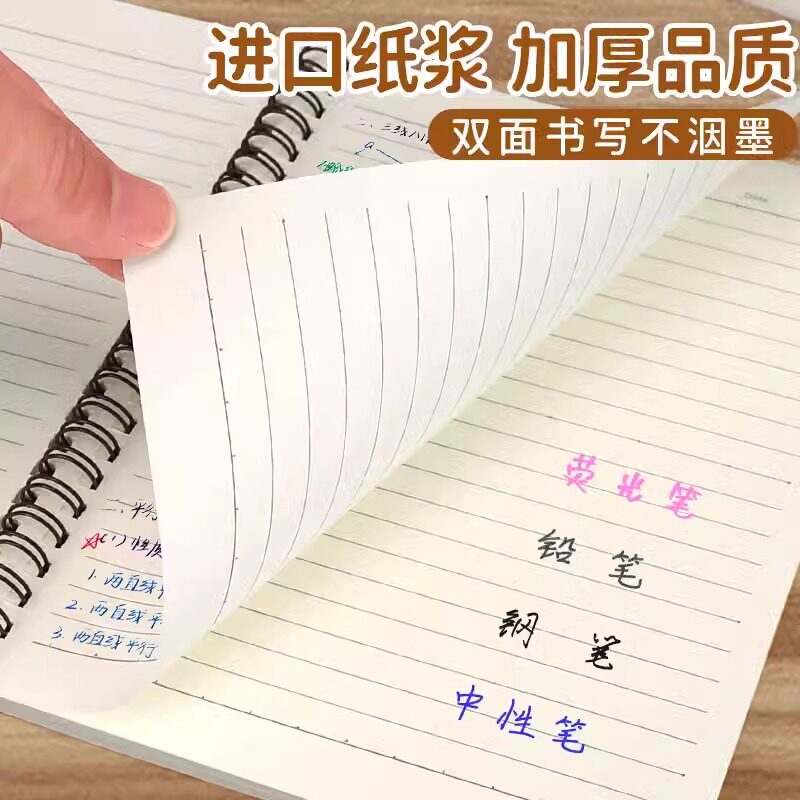 进口纸浆 加厚品质
双面书写不洇墨
荧光笔
铅笔
钢笔
中性笔
1. 两直线平
2. 两直线平
3. 两直线平行